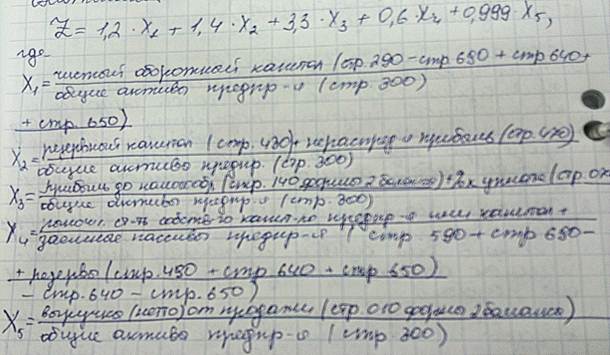 Z = 1,2 · X₁ + 1,4 · X₂ + 3,3 · X₃ + 0,6 · X₄ + 0,999 · X₅,
где
X₁ = чистый оборотный капитал (стр. 290 - стр 690 + стр 640 +
общие активы предпр-я (стр. 300)
+ стр. 650)
X₂ = резервный капитал (стр. 430) + нераспред-я прибыль (стр. 470)
общие активы предпр. (стр. 300)
X₃ = прибыль до налогообл. (стр. 140 формы 2 баланса) + (стр.
общие активы предпр-я (стр. 300)
X₄ = ст-ть капит-ла предпр-я или капитал +
заемные пассивы предпр-я (стр. 590 + стр 690 -
+ резервы (стр. 490 + стр. 640 + стр. 650)
- стр. 640 - стр. 650)
X₅ = выручка (нетто) от продажи (стр. 010 формы 2 баланса)
общие активы предпр-я (стр 300)